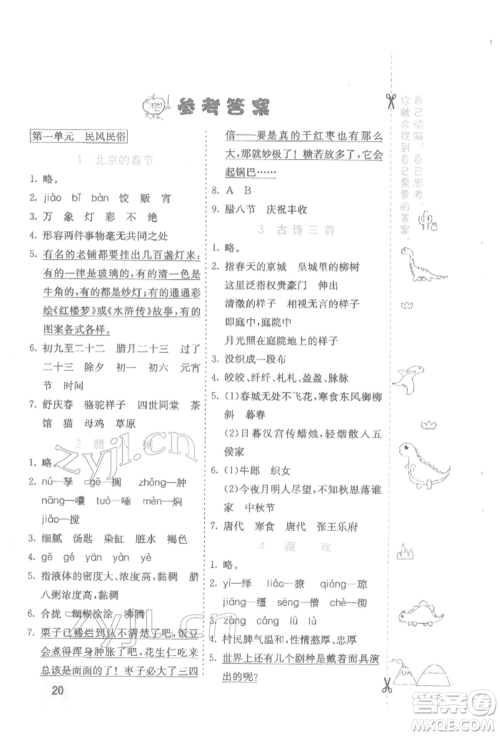 参考答案
第一单元 民风民俗
1 北京的春节
1. 略。
2. jiāo bǐ bàn 饺 贩 宵
3. 万 象 灯 彩 不 绝
4. 形容两件事物毫无共同之处
5. 有名的老铺都要挂出几百盏灯来:有的一律是玻璃的,有的清一色是牛角的,有的都是纱灯;有的通通彩绘《红楼梦》或《水浒传》故事,有的图案各式各样。
6. 初九至二十二 腊月二十三 过了二十三 除夕 正月初一 元宵节 时间
7. 舒庆春 骆驼祥子 四世同堂 茶馆 猫 母鸡 草原
2 腊 粥
1. 略。
2. nú—孥 gē—搁 zhǒng—肿
niang—孃 tuò—唾 mèn—焖
jiǎo—搅
3. 细腻 汤匙 染缸 脏水 甜粥
4. gē gé yān yàn yè
5. 指液体的密度大、浓度大,黏稠 腊八粥浓度、密度大,黏稠
6. 合拢 糊糊涂涂 沸腾
7. 栗子已稀烂到认不清楚了吧,饭豆会煮得浑身肿胀了吧,花生仁吃来总该是面面的了!枣子必大了三四
倍——要是真的干红枣也有那么大,那就妙极了!糖若放多了,它会起锅巴……
8. A B
9. 腊八节 庆祝丰收
3 古诗三首
1. 略。
2. 指春天的京城 皇城里的柳树
这里指权贵豪门 伸出
清澈的样子 相视无言的样子
即庭中,庭院中
月光照在庭院的样子
3. 没织成一段布
4. 皎皎、纤纤、札札、盈盈、脉脉
5. (1)春城无处不飞花,寒食东风御柳斜 暮春
(2)日暮汉宫传蜡烛,轻烟散入五侯家
6. (1)牛郎 织女
(2)今夜月明人尽望,不知秋思落谁家 中秋节
7. 唐代 寒食 唐代 张王乐府
4 藏 戏
1. 略。
2. yì—绎 liáo—獠 qióng—琼
jiāng—缰 dūn—敦 kuàng—旷
4. 村民脾气温和,性情憨厚、忠厚
5. 世界上还有几个剧种是戴着面具演出的呢?
20
自己动脑,自己思考,
你就会找到自己需要的答案。
zyjl.cn
zyjl.cn
答案圈
MXQE.COM